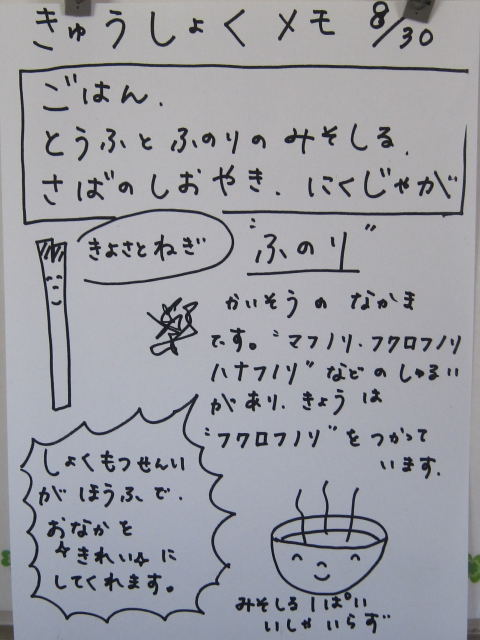 きゅうしょくメモ 8/30
ごはん.
とうふとふのりのみそしる.
さばのしおやき. にくじゃが
きよさとねぎ
"ふのり"
かいそうのなかま
です。"マフノリ・フクロフノリ
ハナフノリ"などのしゅるい
があり、きょうは
"フクロフノリ"をつかって
います.
しょくもつせんい
がほうふで、
おなかを
☆きれい☆に
してくれます。
みそしる1ぱい
いしゃいらず